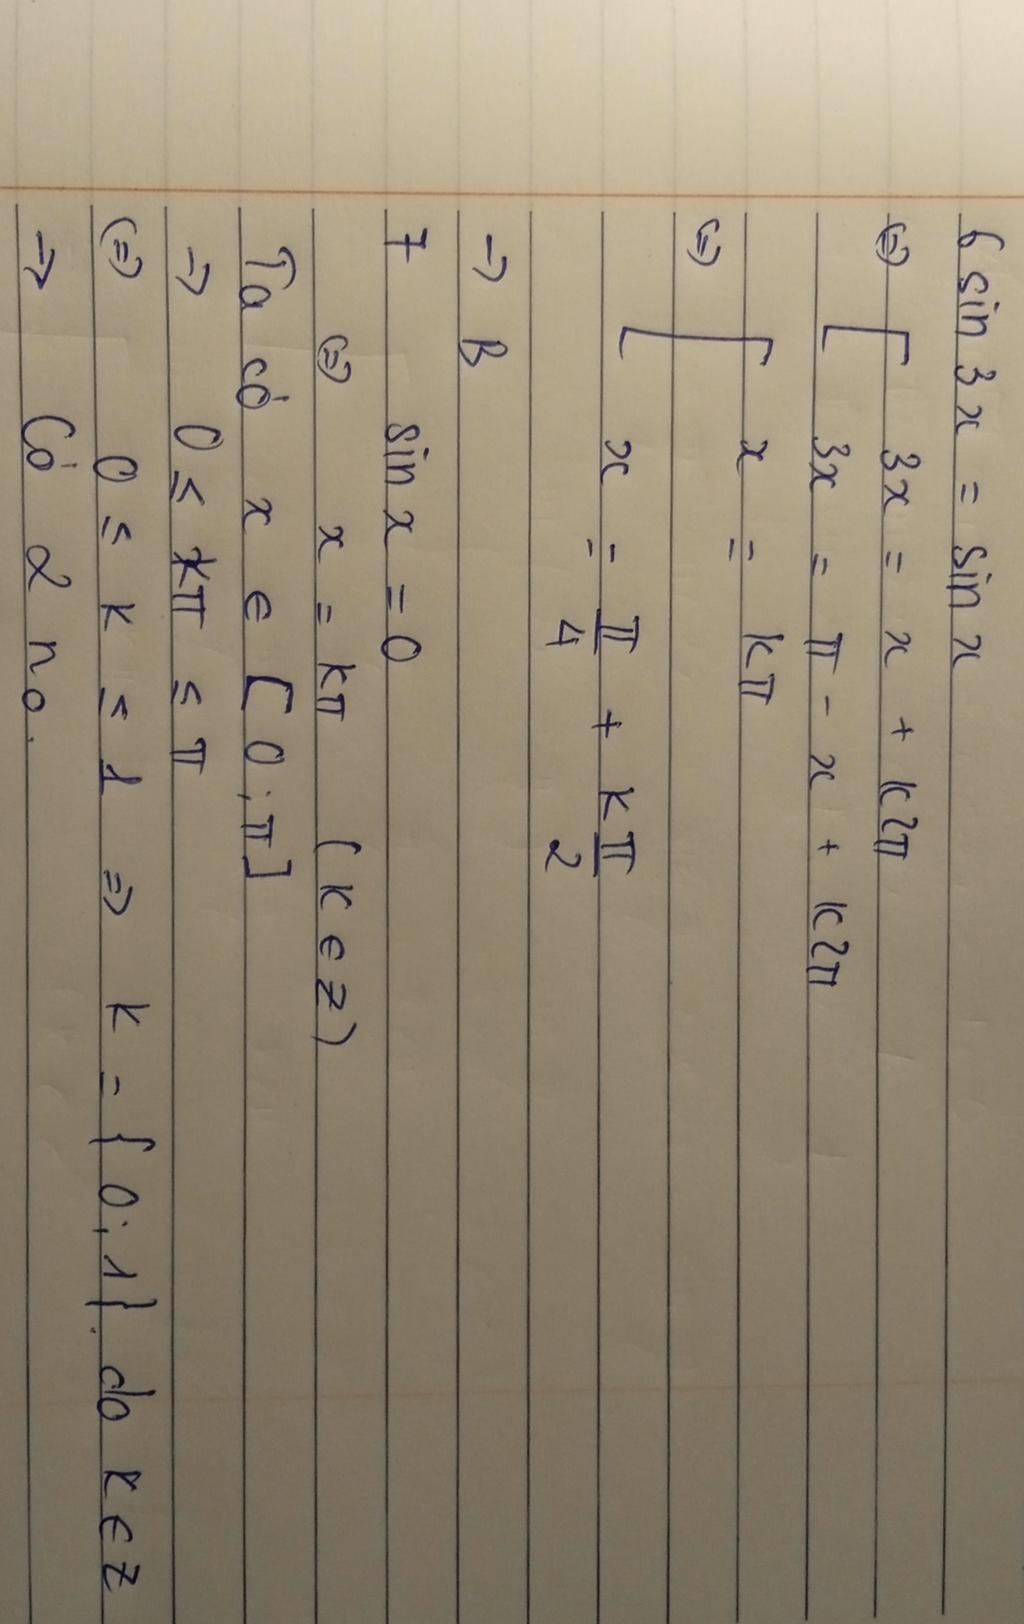 6 sin 3x = sin x
(=) [ 3x = x + k2π
3x = π - x + k2π
(=) [ x = kπ
x = π/4 + kπ/2
→ B
7 sin x = 0
(=) x = kπ (k ∈ Z)
Ta có x ∈ [0;π]
→ 0 ≤ kπ ≤ π
(=) 0 ≤ k ≤ 1 => k = {0;1}. do k ∈ Z
→ Có 2 no.